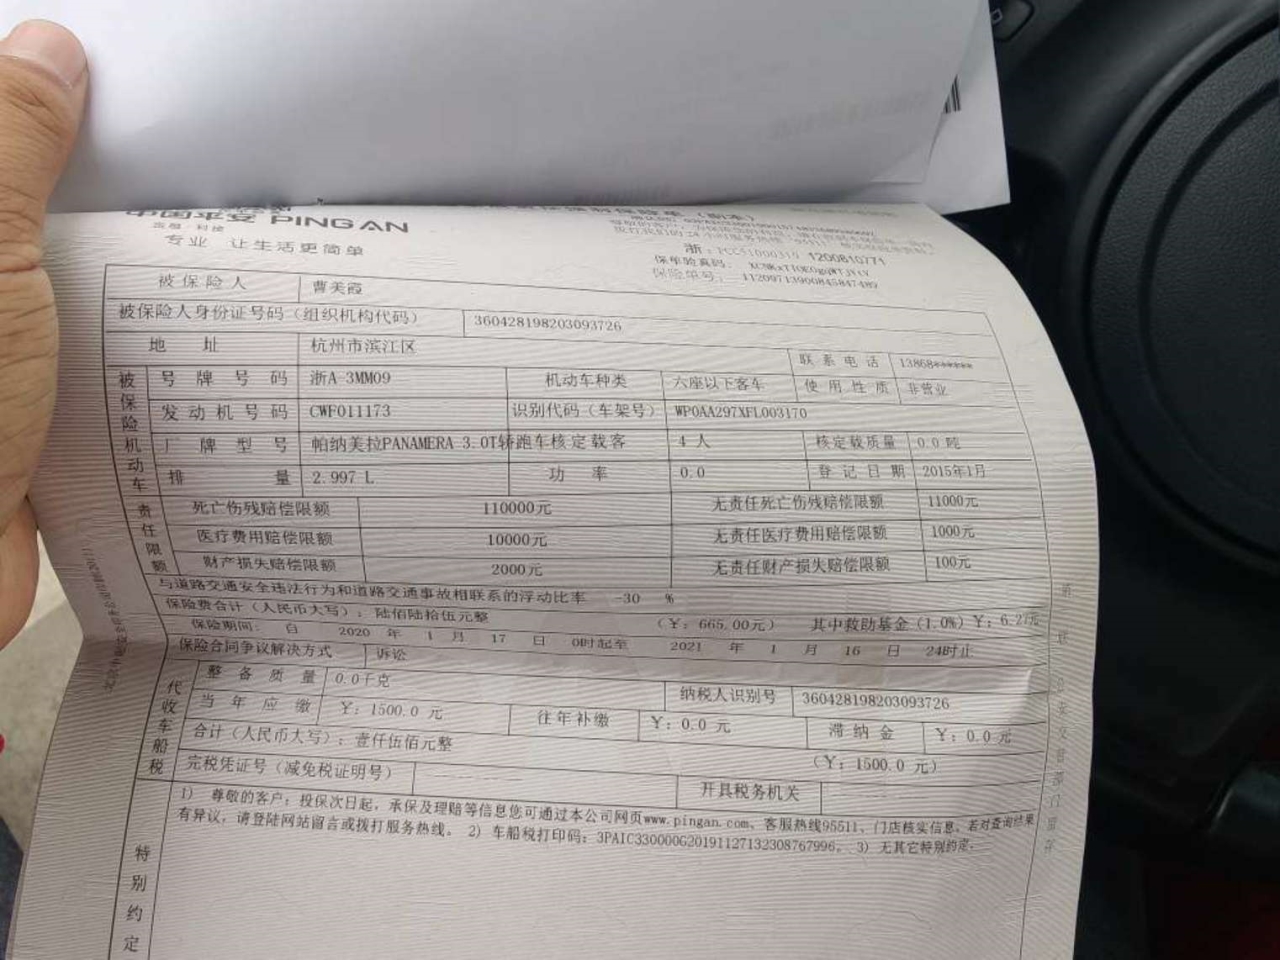 中国平安 PING AN
金融·科技
专业 让生活更简单
浙: 1200810771
保单验真码:
保险单号: 11209713900845847489
被保险人 曹美霞
被保险人身份证号码(组织机构代码) 360428198203093726
地址 杭州市滨江区 联系电话 13868******
被保险机动车
号牌号码 浙A-3MM09 机动车种类 六座以下客车 使用性质 非营业
发动机号码 CWF011173 识别代码(车架号) WP0AA297XFL003170
厂牌型号 帕纳美拉PANAMERA 3.0T轿跑车 核定载客 4 人 核定载质量 0.0 吨
排量 2.997 L 功率 0.0 登记日期 2015年1月
责任限额
死亡伤残赔偿限额 110000元 无责任死亡伤残赔偿限额 11000元
医疗费用赔偿限额 10000元 无责任医疗费用赔偿限额 1000元
财产损失赔偿限额 2000元 无责任财产损失赔偿限额 100元
与道路交通安全违法行为和道路交通事故相联系的浮动比率 -30 %
保险费合计(人民币大写): 陆佰陆拾伍元整 (¥: 665.00元) 其中救助基金(1.0%)¥: 6.27元
保险期间: 自 2020 年 1 月 17 日 0时起至 2021 年 1 月 16 日 24时止
保险合同争议解决方式 诉讼
代收车船税
整备质量 0.0千克 纳税人识别号 360428198203093726
当年应缴 ¥: 1500.0 元 往年补缴 ¥: 0.0 元 滞纳金 ¥: 0.0 元
合计(人民币大写): 壹仟伍佰元整 (¥: 1500.0 元)
完税凭证号(减免税证明号) 开具税务机关
特别约定
1) 尊敬的客户: 投保次日起, 承保及理赔等信息您可通过本公司网页www.pingan.com、客服热线95511、门店核实信息, 若对查询结果
有异议, 请登陆网站留言或拨打服务热线。 2) 车船税打印码: 3PAIC330000620191127132308767996。 3) 无其它特别约定。